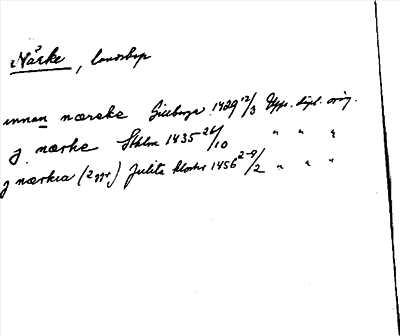 Närke, landskap
innan næreke Lilleborge 1429 12/3 Upps. dipl. orig.
j nærke Sthlm 1435 26/10 " " "
j nærkia (2 ggr) Julita kloster 1456 2-9/2 " " "